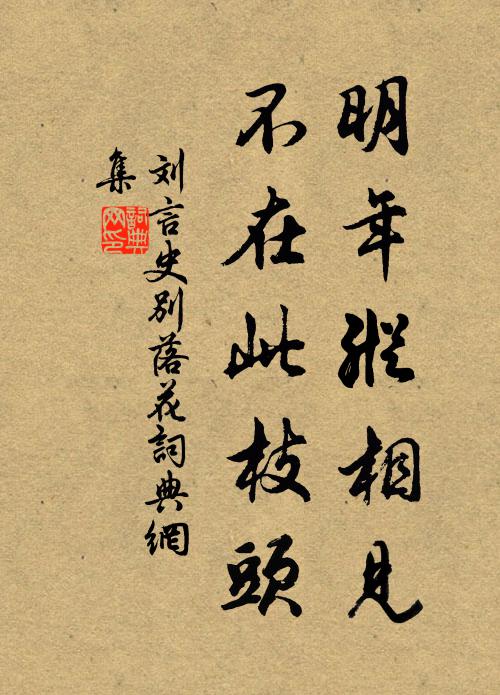 明年縱相見
不在此枝頭
刘言史別落花詞典網
集
詞典
网印